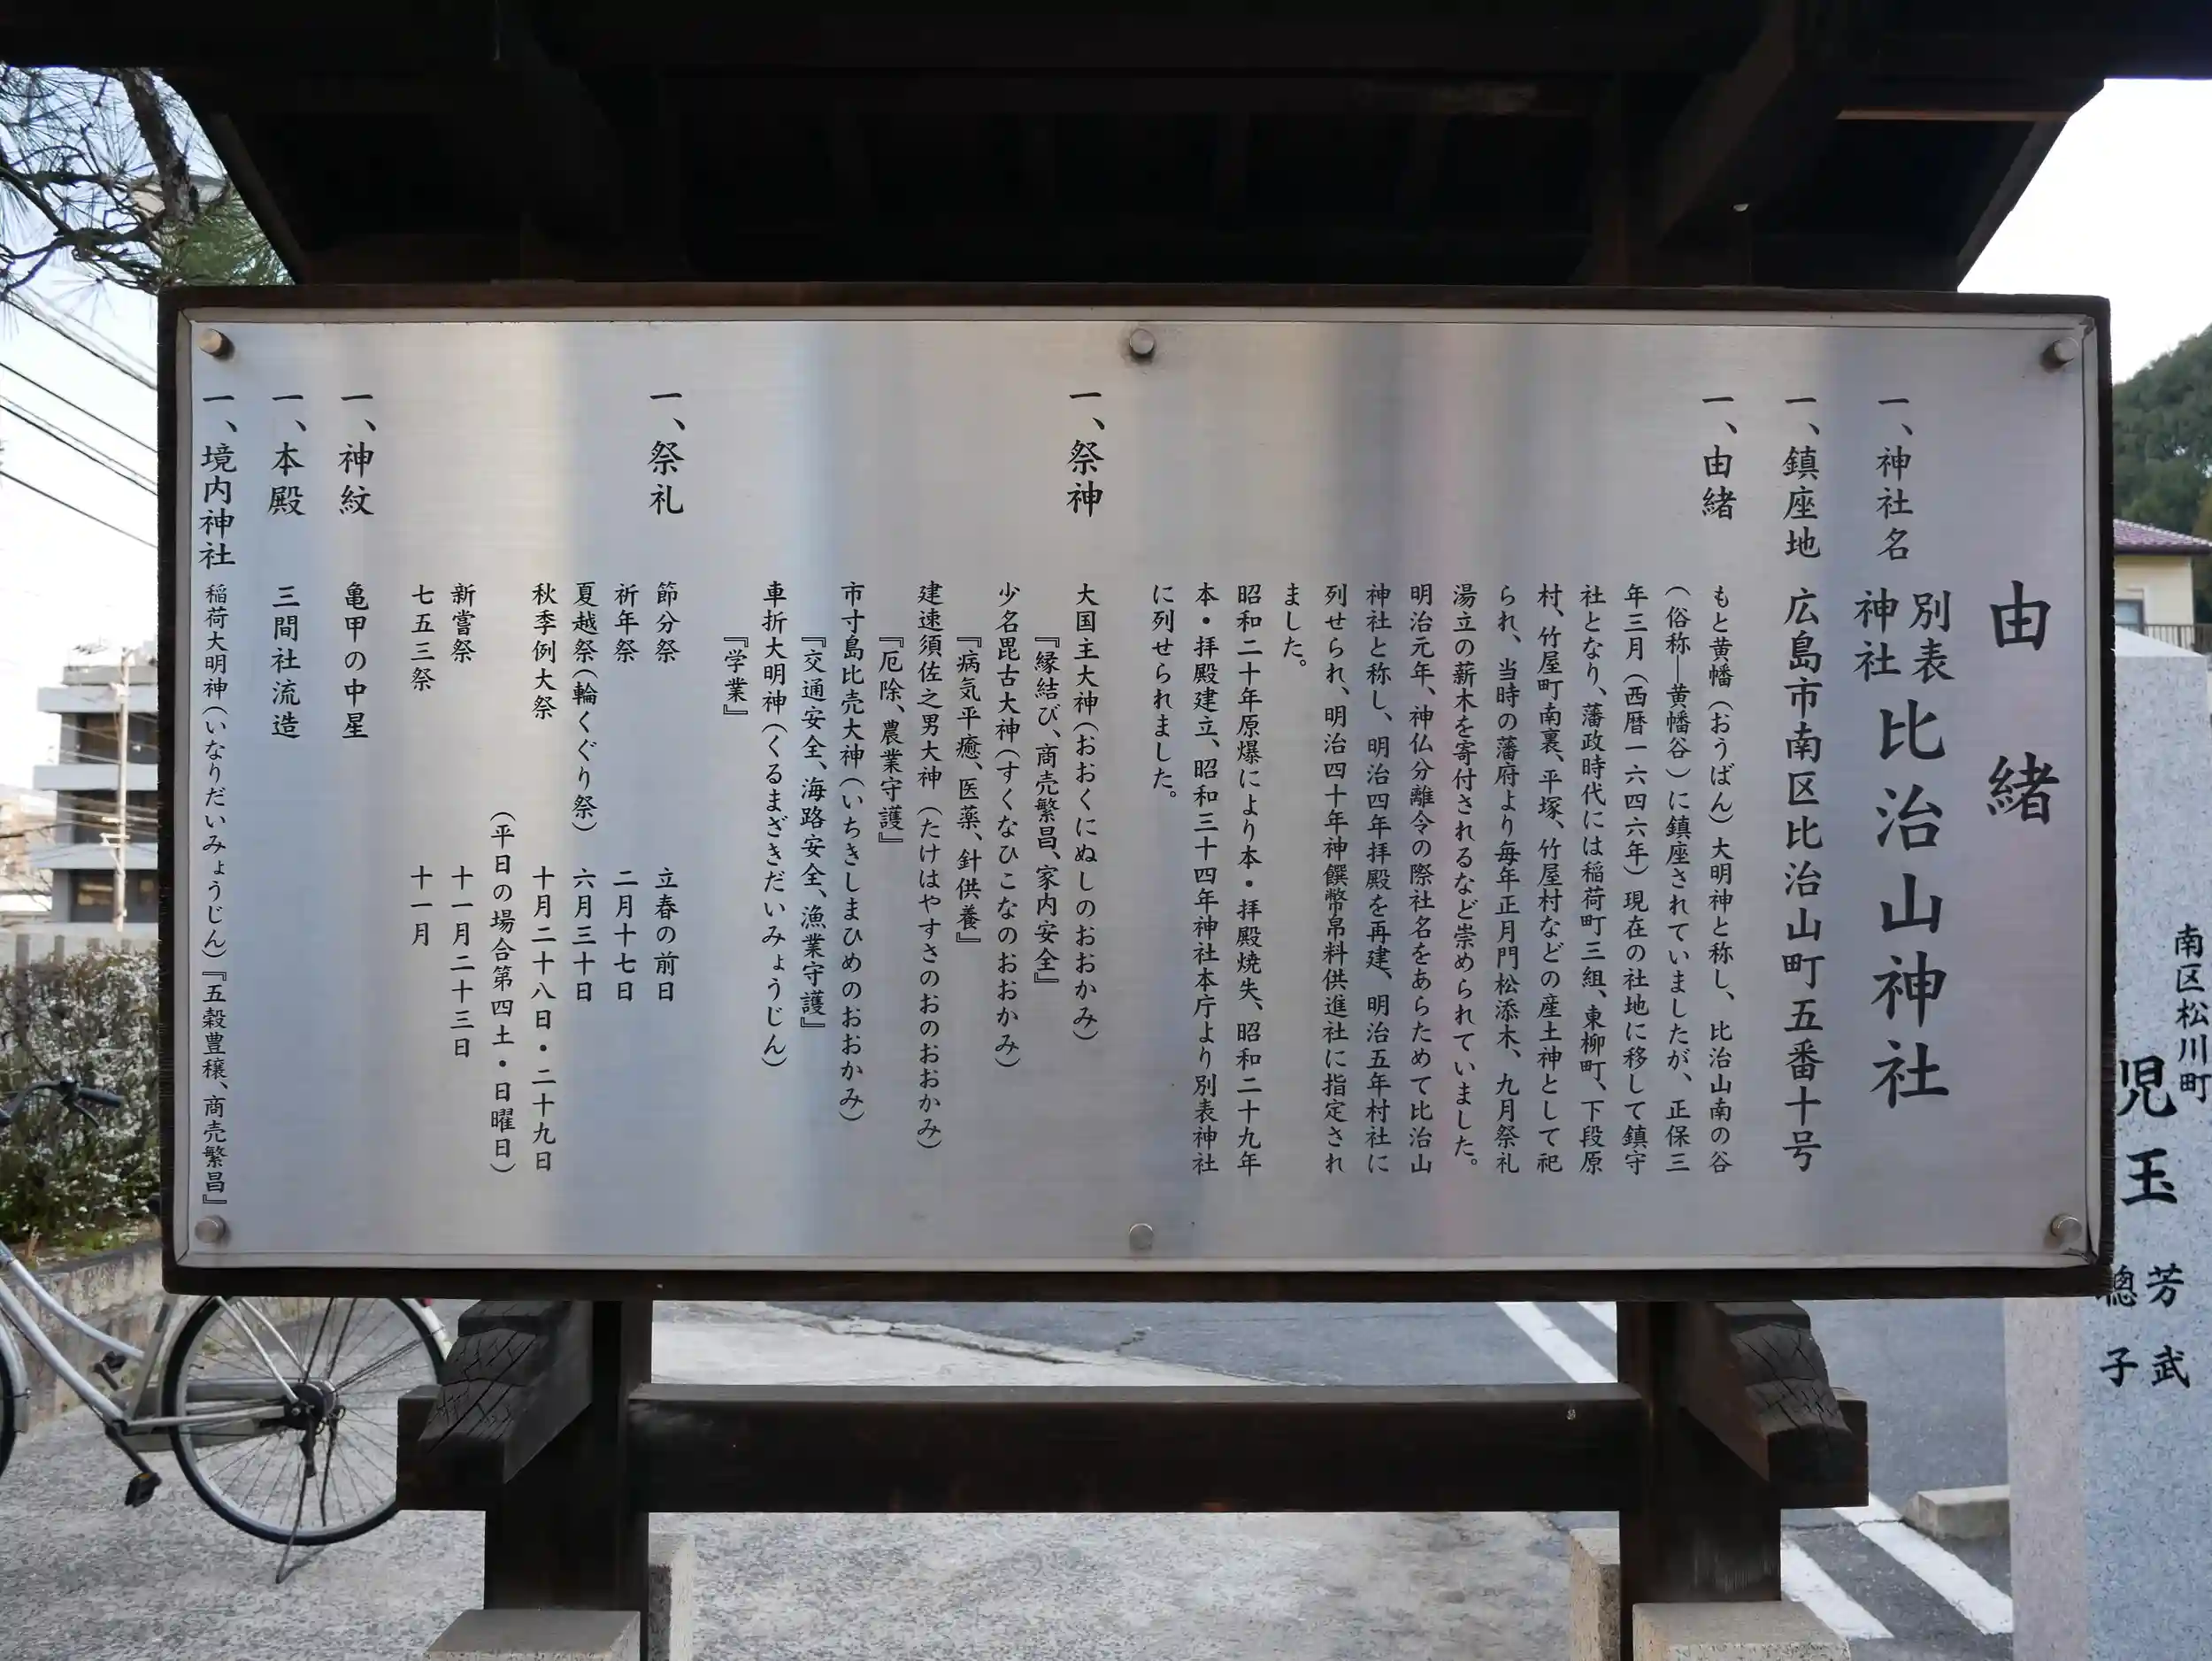 由緒
一、神社名 別表神社 比治山神社
一、鎮座地 広島市南区比治山町五番十号
一、由緒
もと黄幡（おうばん）大明神と称し、比治山南の谷
（俗称―黄幡谷）に鎮座されていましたが、正保三
年三月（西暦一六四六年）現在の社地に移して鎮守
社となり、藩政時代には稲荷町三組、東柳町、下段原
村、竹屋町南裏、平塚、竹屋村などの産土神として祀
られ、当時の藩府より毎年正月門松添木、九月祭礼
湯立の薪木を寄付されるなど崇められていました。
明治元年、神仏分離令の際社名をあらためて比治山
神社と称し、明治四年拝殿を再建、明治五年村社に
列せられ、明治四十年神饌幣帛料供進社に指定され
ました。
昭和二十年原爆により本・拝殿焼失、昭和二十九年
本・拝殿建立、昭和三十四年神社本庁より別表神社
に列せられました。
一、祭神
大国主大神（おおくにぬしのおおかみ）
『縁結び、商売繁昌、家内安全』
少名毘古大神（すくなひこなのおおかみ）
『病気平癒、医薬、針供養』
建速須佐之男大神（たけはやすさのおのおおかみ）
『厄除、農業守護』
市寸島比売大神（いちきしまひめのおおかみ）
『交通安全、海路安全、漁業守護』
車折大明神（くるまざきだいみょうじん）
『学業』
一、祭礼
節分祭 立春の前日
祈年祭 二月十七日
夏越祭（輪くぐり祭） 六月三十日
秋季例大祭 十月二十八日・二十九日
（平日の場合第四土・日曜日）
新嘗祭 十一月二十三日
七五三祭 十一月
一、神紋 亀甲の中星
一、本殿 三間社流造
一、境内神社 稲荷大明神（いなりだいみょうじん）『五穀豊穣、商売繁昌』
南区松川町
児玉 芳武
聰子